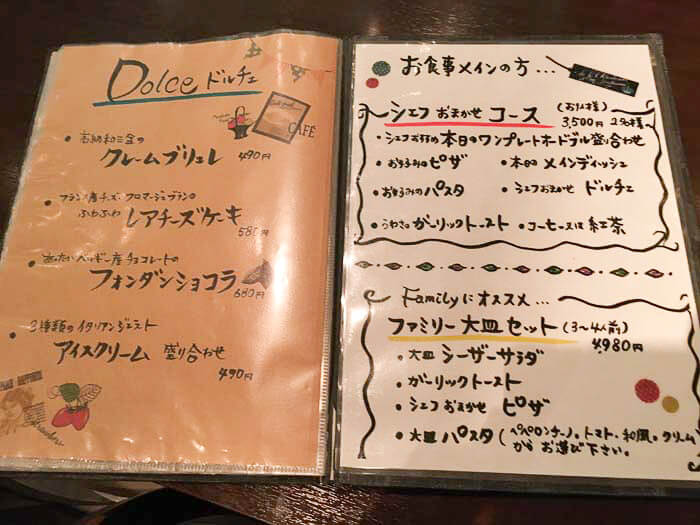 Dolce ドルチェ
CAFE
• 高級和三盆の
クレームブリュレ 490円
• フランス産チーズ フロマージュブランの
ふわふわ レアチーズケーキ
580円
• あったかベルギー産チョコレートの
フォンダンショコラ
680円
• 3種類のイタリアンジェラート
アイスクリーム 盛り合わせ
490円
お食事メインの方...
シェフ おまかせ コース (お1人様)
3,500円 2名様〜
• シェフお好み 本日のワンプレートオードブル盛り合わせ
• お好みのピザ • 本日の メインディッシュ
• お好みのパスタ • シェフおまかせ ドルチェ
• うわさの ガーリックトースト • コーヒー又は 紅茶
Familyにオススメ...
ファミリー 大皿 セット (3〜4人前)
4,980円
• 大皿 シーザーサラダ
• ガーリックトースト
• シェフ おまかせ ピザ
• 大皿 パスタ (ペペロンチーノ。トマト。和風。クリーム
からお選び下さい。